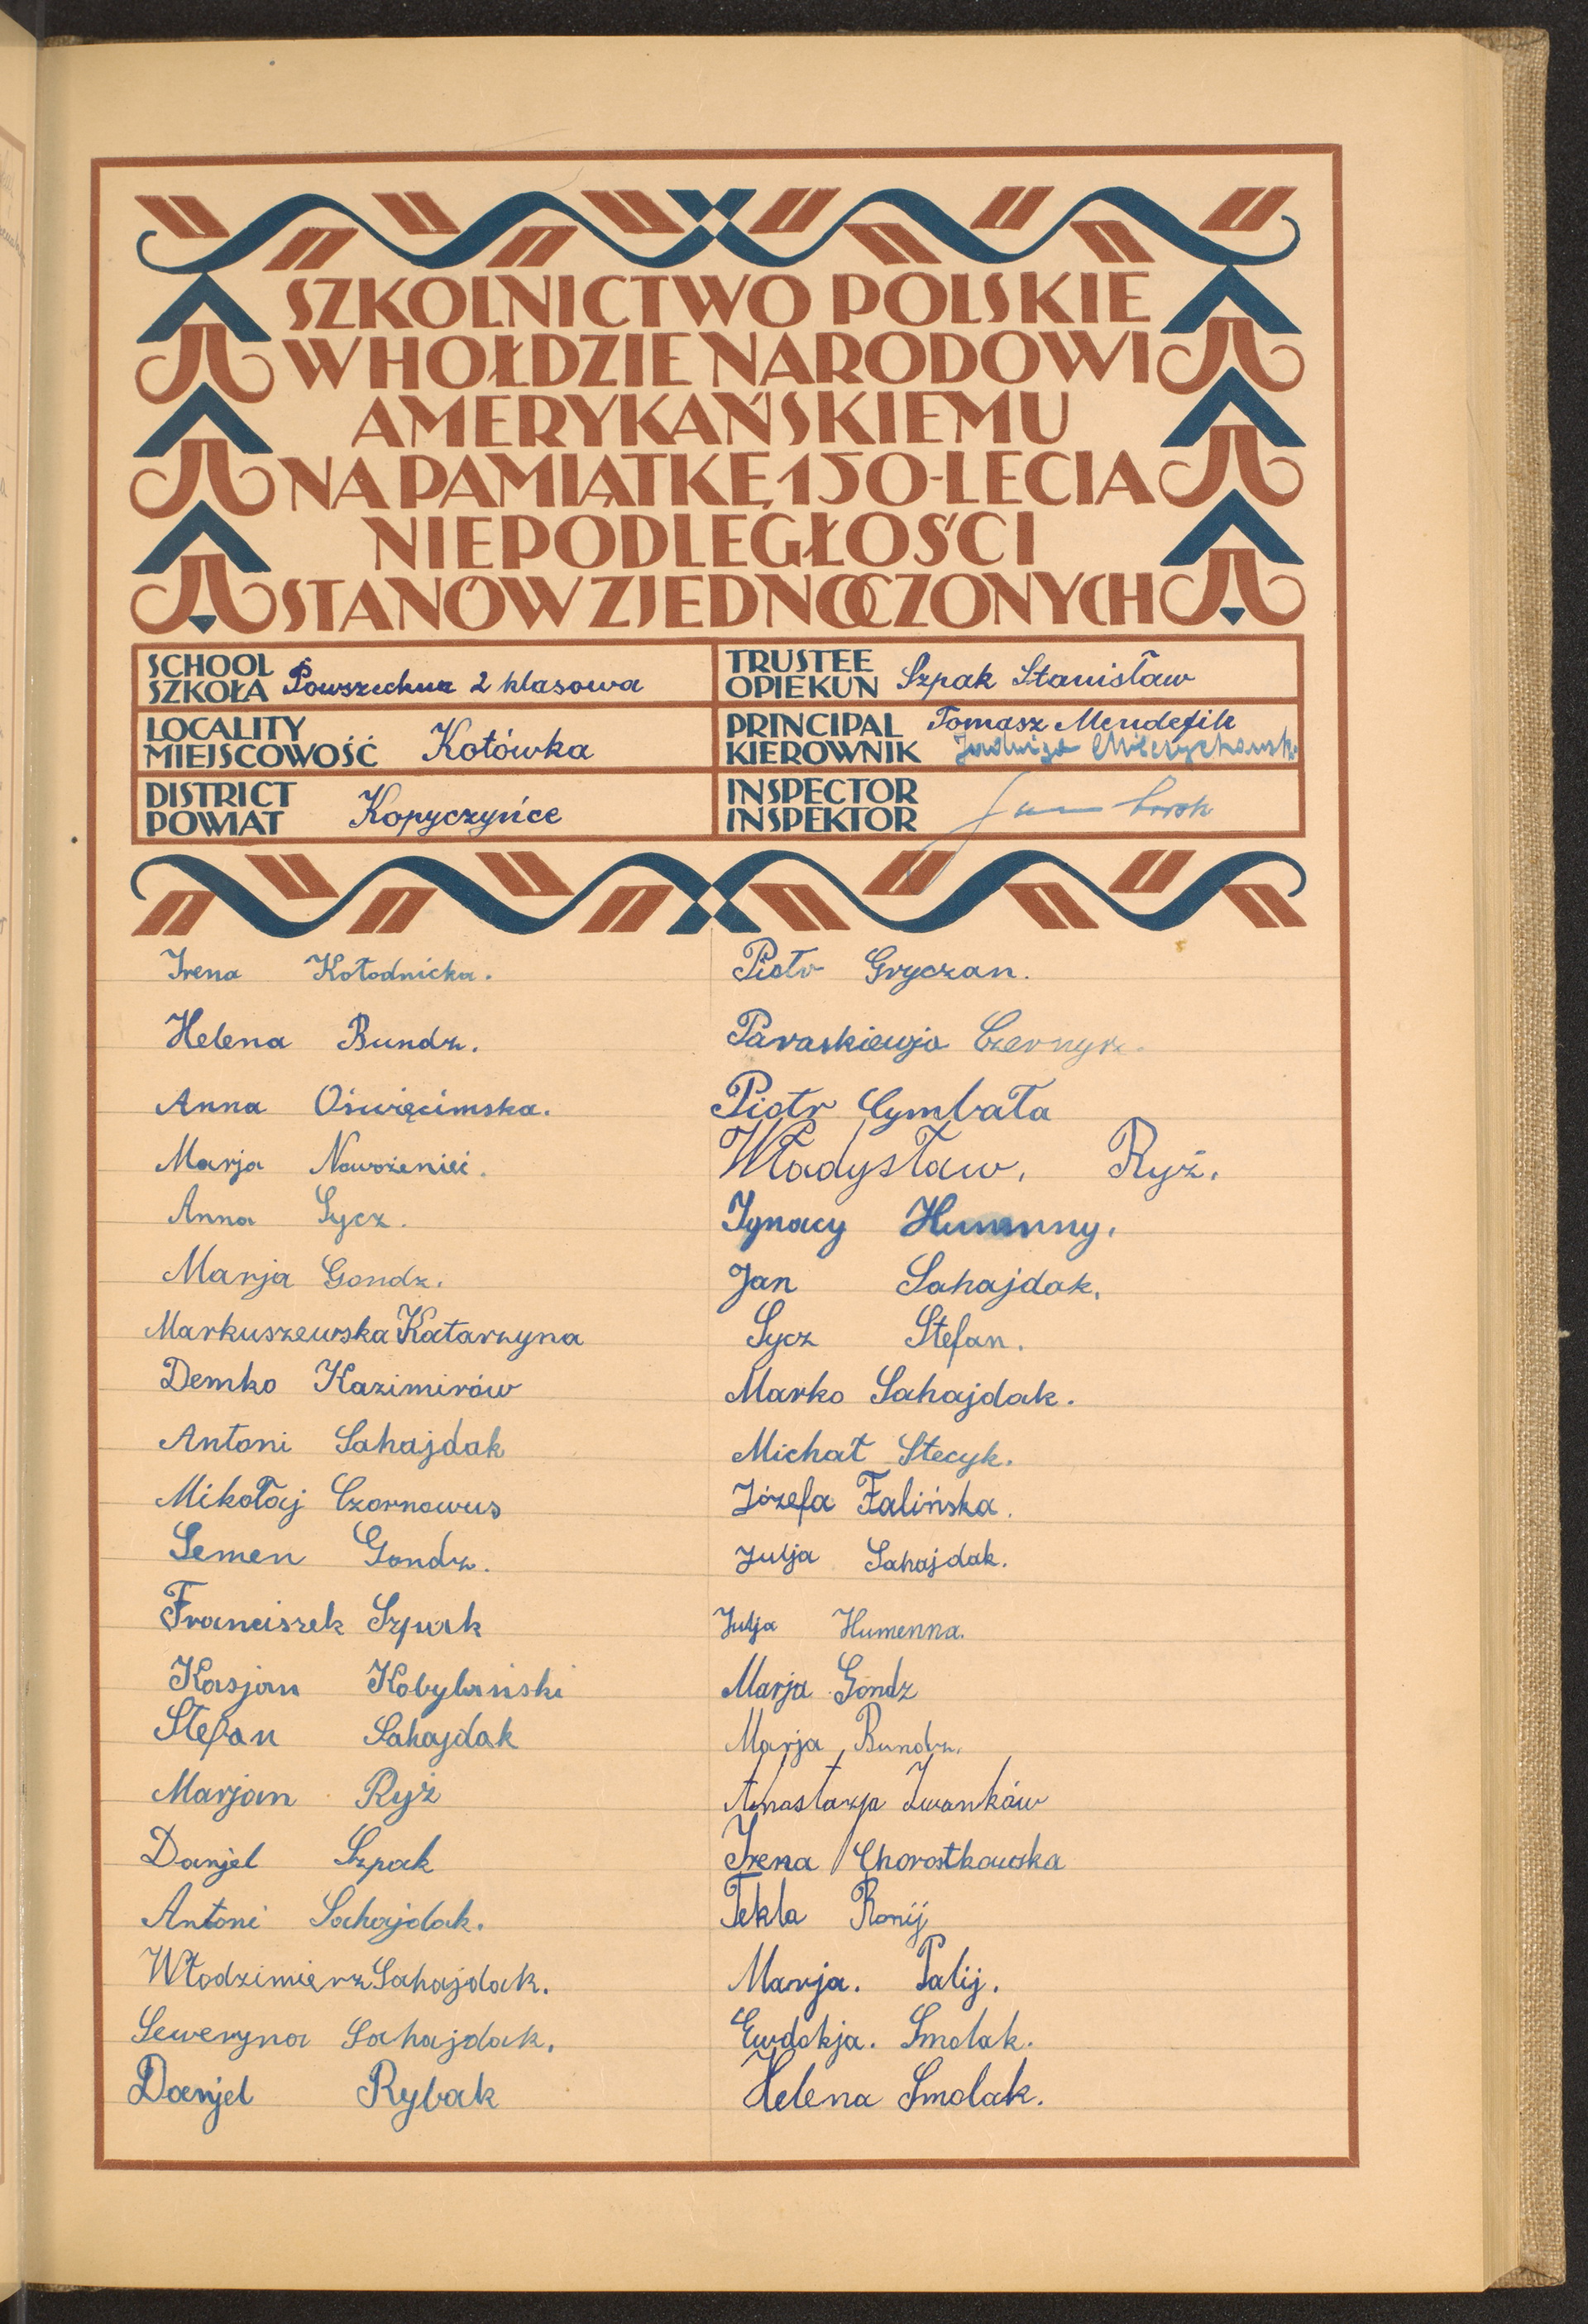 SZKOLNICTWO POLSKIE
W HOŁDZIE NARODOWI
AMERYKAŃSKIEMU
NA PAMIĄTKĘ 150-LECIA
NIEPODLEGŁOŚCI
STANÓW ZJEDNOCZONYCH
SCHOOL
SZKOŁA Powszechna 2 klasowa
TRUSTEE
OPIEKUN Szpak Stanisław
LOCALITY
MIEJSCOWOŚĆ Kotówka
PRINCIPAL Tomasz
KIEROWNIK Jadwiga
DISTRICT
POWIAT Kopyczyńce
INSPECTOR
INSPEKTOR
Irena Kołodnicka.
Helena Bundz.
Anna Oświęcimska.
Marja
Anna Sycz.
Marja Gondz.
Markuszewska Katarzyna
Demko Kazimirów
Antoni Sahajdak
Mikołaj Czornowus
Semen Gondz.
Franciszek Szpak
Kasjan Kobylański
Stefan Sahajdak
Marjan Ryż
Danjel Szpak
Antoni Sahajdak.
Włodzimierz Sahajdak.
Seweryna Sahajdak.
Danjel Rybak
Piotr Gryczan.
Paraskiewja
Piotr Cymbała
Władysław. Ryż.
Ignacy Humnny.
Jan Sahajdak.
Sycz Stefan.
Marko Sahajdak.
Michał Stecyk.
Józefa Falińska.
Julja Sahajdak.
Julja Humenna.
Marja Gondz
Marja Bundz.
Anastazja Iwanków
Irena Chorostkowska
Tekla Ronij
Marja. Palij.
Ewdokja. Smolak.
Helena Smolak.